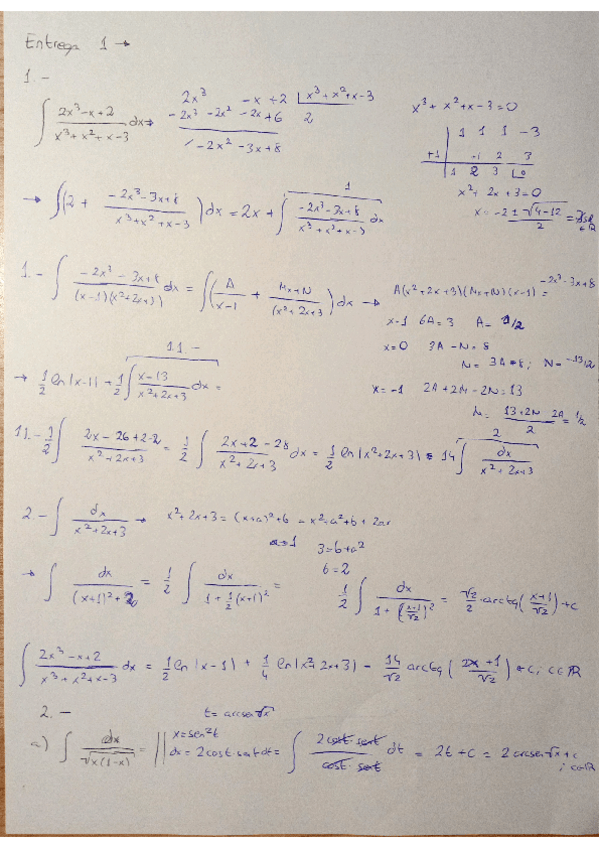 Entrega 1 →
1.-
∫ (2x³-x+2)/(x³+x²+x-3) dx → 2x³ -x+2 | x³+x²+x-3
-2x³ -2x² -2x+6 2
/ -2x² -3x+8
x³+x²+x-3=0
1 1 1 -3
+1 1 2 3
1 2 3 0
x²+2x+3=0
x = (-2±√(4-12))/2 =
→ ∫(2 + (-2x²-3x+8)/(x³+x²+x-3)) dx = 2x + ∫ (-2x²-3x+8)/(x³+x²+x-3) dx
1
1.- ∫ (-2x²-3x+8)/((x-1)(x²+2x+3)) dx = ∫(A/(x-1) + (Mx+N)/(x²+2x+3)) dx → A(x²+2x+3)(Mx+N)(x-1) = -2x²-3x+8
x=1 6A=3 A=1/2
x=0 3A-N=8
N= 3A-8; N= -13/2
x=-1 2A+2M-2N=13
M= (13+2N-2A)/2 = 1/2
1.1.-
→ 1/2 ln|x-1| + 1/2 ∫ (x-13)/(x²+2x+3) dx =
1.1.- 1/2 ∫ (2x-26+2-2)/(x²+2x+3) = 1/2 ∫ (2x+2-28)/(x²+2x+3) dx = 1/2 ln|x²+2x+3| - 14 ∫ dx/(x²+2x+3)
2
2.- ∫ dx/(x²+2x+3) → x²+2x+3 = (x+a)²+b = x²+a²+b+2ax
a=1 3=b+a²
b=2
→ ∫ dx/((x+1)²+2) = 1/2 ∫ dx/(1+1/2(x+1)²) = 1/2 ∫ dx/(1+((x+1)/√2)²) = √2/2 · arctg((x+1)/√2)+c
∫ (2x³-x+2)/(x³+x²+x-3) dx = 1/2 ln|x-1| + 1/4 ln|x²+2x+3| - 14/√2 arctg((x+1)/√2)+c; c∈ℝ
2.-
t= arcsen√x
a) ∫ dx/√(x(1-x)) = || x=sen²t
dx = 2cost·sent dt = ∫ (2cost·sent)/(cost·sent) dt = 2t+c = 2arcsen√x+c
; c∈ℝ